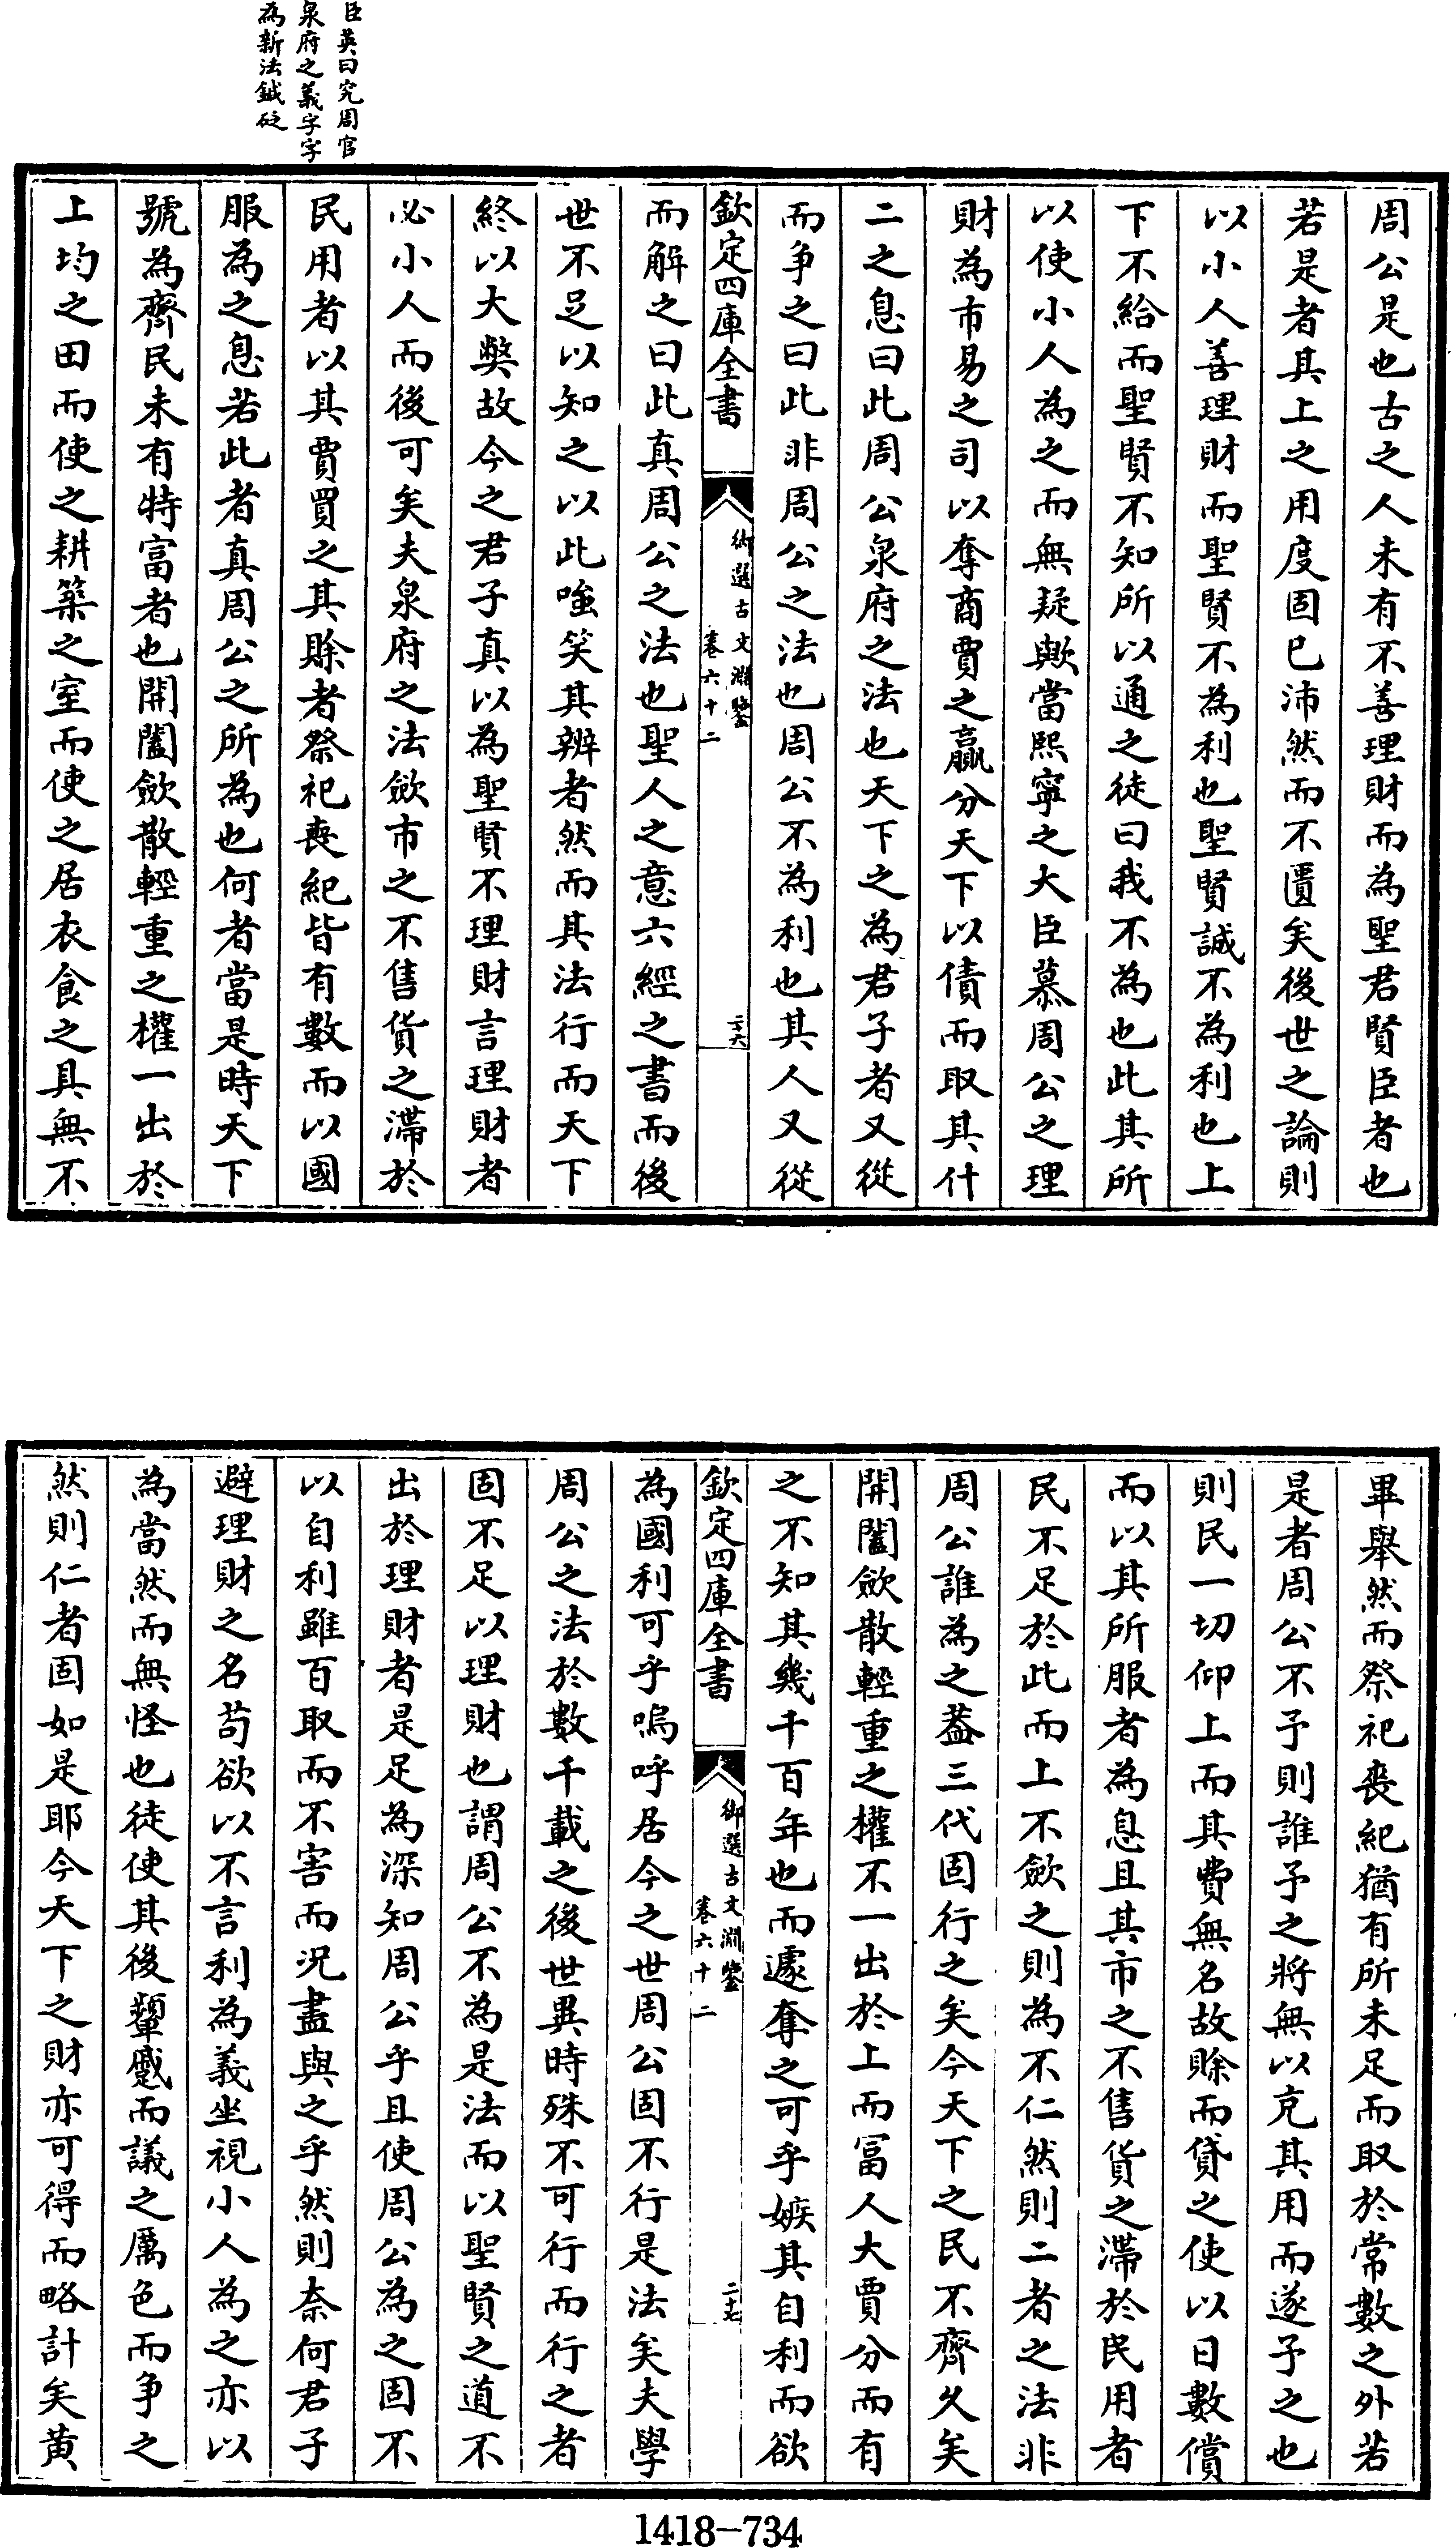 臣英曰究周官
泉府之義字字
為新法鍼砭
周公是也古之人未有不善理財而為聖君賢臣者也
若是者其上之用度固已沛然而不匱矣後世之論則
以小人善理財而聖賢不為利也聖賢誠不為利也上
下不給而聖賢不知所以通之徒曰我不為也此其所
以使小人為之而無疑歟當熙寧之大臣慕周公之理
財為市易之司以奪商賈之贏分天下以債而取其什
二之息曰此周公泉府之法也天下之為君子者又從
而爭之曰此非周公之法也周公不為利也其人又從
欽定四庫全書
御選古文淵鑒
卷六十二
二十六
而解之曰此真周公之法也聖人之意六經之書而後
世不足以知之以此嗤笑其辨者然而其法行而天下
終以大弊故今之君子真以為聖賢不理財言理財者
必小人而後可矣夫泉府之法歛市之不售貨之滯於
民用者以其賈買之其賒者祭祀喪紀皆有數而以國
服為之息若此者真周公之所為也何者當是時天下
號為齊民未有特富者也開闔歛散輕重之權一出於
上均之田而使之耕築之室而使之居衣食之具無不
畢舉然而祭祀喪紀猶有所未足而取於常數之外若
是者周公不予則誰予之將無以充其用而遂予之也
則民一切仰上而其費無名故賒而貸之使以日數償
而以其所服者為息且其市之不售貨之滯於民用者
民不足於此而上不歛之則為不仁然則二者之法非
周公誰為之蓋三代固行之矣今天下之民不齊久矣
開闔歛散輕重之權不一出於上而富人大賈分而有
之不知其幾千百年也而遽奪之可乎嫉其自利而欲
欽定四庫全書
御選古文淵鑒
卷六十二
二十七
為國利可乎嗚呼居今之世周公固不行是法矣夫學
周公之法於數千載之後世異時殊不可行而行之者
固不足以理財也謂周公不為是法而以聖賢之道不
出於理財者是足為深知周公乎且使周公為之固不
以自利雖百取而不害而況盡與之乎然則奈何君子
避理財之名苟欲以不言利為義坐視小人為之亦以
為當然而無怪也徒使其後顰蹙而議之厲色而爭之
然則仁者固如是耶今天下之財亦可得而略計矣黃
1418-734